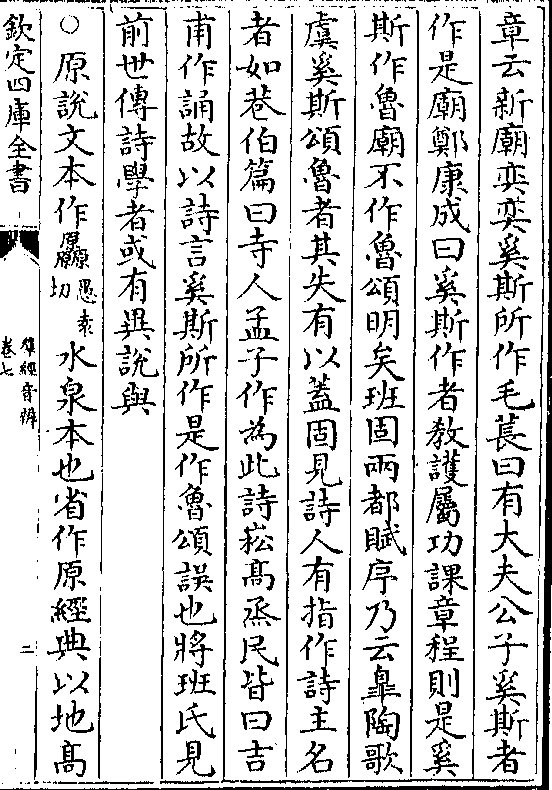 章云新廟奕奕奚斯所作毛萇曰有大夫公子奚斯者
作是廟鄭康成曰奚斯作者教護屬功課章程則是奚
斯作魯廟不作魯頌明矣班固兩都賦序乃云臯陶歌
虞奚斯頌魯者其失有以蓋固見詩人有指作詩主名
者如巷伯篇曰寺人孟子作為此詩崧髙烝民皆曰吉
甫作誦故以詩言奚斯所作是作魯頌誤也將班氏見
前世傳詩學者或有異說與
○原說文本作厵愚袁切水泉本也省作原經典以地髙
欽定四庫全書
羣經音辨
卷七
二